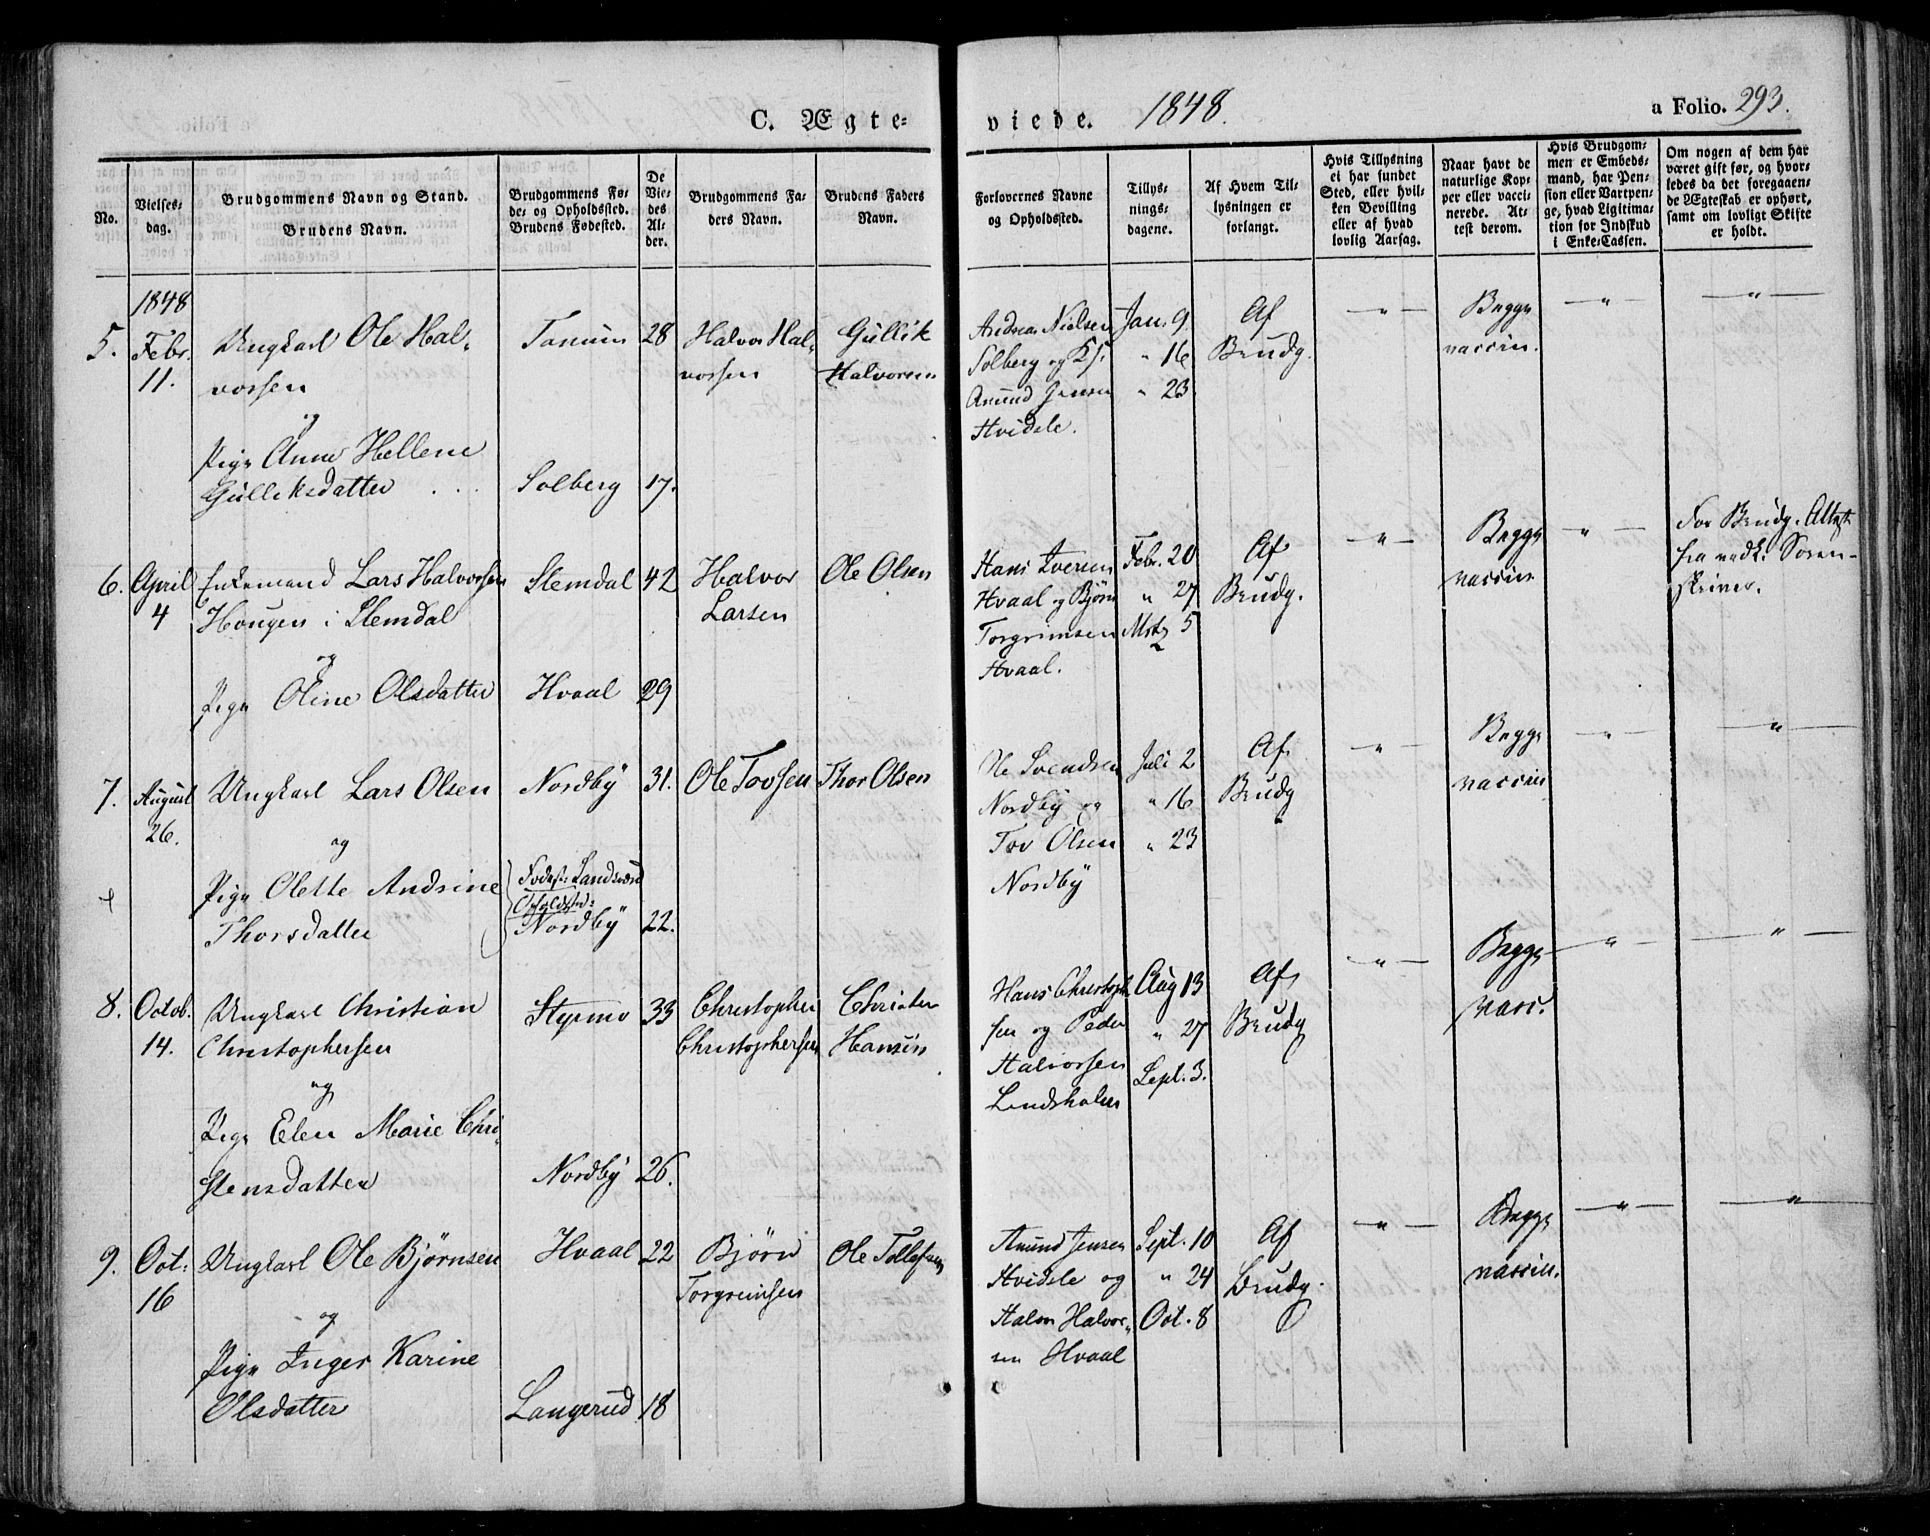 C. Ægte= viede. 1848. a Folio. 293.
No.
Vielses-
dag.
Brudgommens Navn og Stand.
Brudens Navn.
Brudgommens Fø-
de- og Opholdssted.
Brudens Fødested.
De
Vie-
des
Al-
der.
Brudgommens Fa-
ders Navn.
Brudens Faders
Navn.
Forlovernes Navne
og Opholdssted.
Tillys-
nings-
dagene.
Af Hvem Til-
lysningen er
forlangt.
Hvis Tillysning
ei har fundet
Sted, eller hvil-
ken Bevilling
eller af hvad
lovlig Aarsag.
Naar havt de
naturlige Kop-
per eller vacci-
nerede. At-
test derom.
Hvis Brudgom-
men er Embeds-
mand, har Pen-
sion eller Vartpen-
ge, hvad Ligitima-
tion for Indskud
i Enke-Cassen.
Om nogen af dem har
været gift før, og hvor-
ledes da det foregaaen-
de Ægteskab er ophørt,
samt om lovligt Skifte
er holdt.
1848
5.
Febr.
11.
Ungkarl Ole Hal-
vorssen
og
Pige Anne Hellene
Gulliksdatter
Tanum
Solberg
28
17.
Halvor Hal-
vorssen
Gullik
Halvorsen
Andreas Nielsen
Solberg og Ks.
Amund Jensen
Hvidsle.
Jan. 9
" 16
" 23
Af
Brudg.
"
Begge
vaccin.
"
"
6.
April
4
Enkemand Lars Halvorssen
Hougen i Slemdal
og
Pige Oline Olsdatter
Slemdal
Hvaal
42
29
Halvor
Larsen
Ole Olsen
Hans Iversen
Hvaal og Bjørn
Torgrimsen
Hvaal.
Febr. 20
" 27
Mrtz 5
Af
Brudg.
"
Begge
vaccin.
"
For Brudg. Attest
fra vedk. Soren-
skriver.
7.
August
26.
Ungkarl Lars Olsen
og
Pige Olette Andrine
Thorsdatter
Nordby
Fødest: Landsværk
Opholdsted:
Nordby
31.
22.
Ole Tovsen
Thor Olsen
Ole Svendsen
Nordby og
Tov Olsen
Nordby
Juli 2
" 16
" 23
Af
Brudg
"
Begge
vaccin
"
"
8.
Octob.
14.
Ungkarl Christian
Christophersen
og
Pige Elen Marie Chri-
stensdatter
Styrmo
Nordby
33
26.
Christopher
Christophersen
Christen
Hansen
Hans Christoph
sen og Peder
Halvorsen
Lindsholm
Aug 13
" 27
Sept. 3.
Af
Brudg
"
Begge
vacc.
"
"
9.
Oct:
16
Ungkarl Ole Bjørnsen
og
Pige Inger Karine
Olsdatter
Hvaal
Langerud
22
18
Bjørn
Torgrimsen
Ole Tollefsen
Amund Jensen
Hvidsle og
Halvor Halvor-
sen Hvaal
Sept. 10
" 24
Oct. 8
Af
Brudg.
"
Begge
vaccin.
"
"